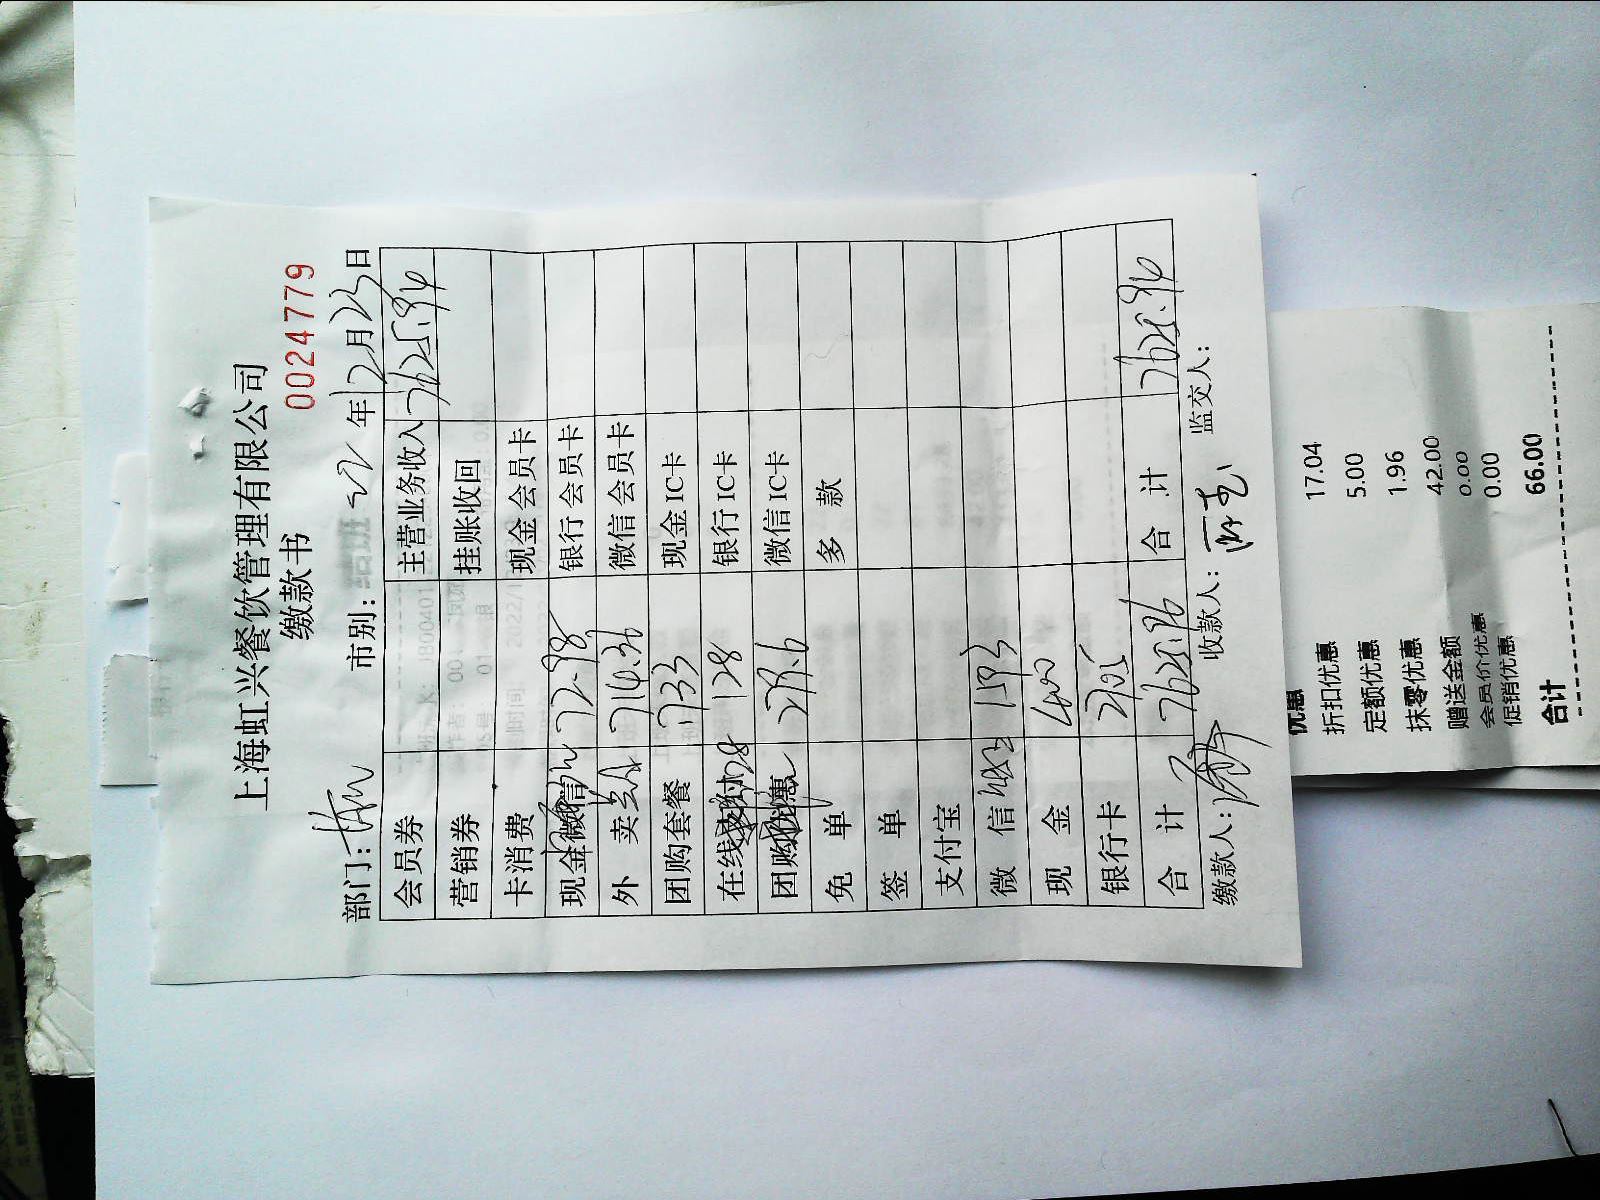 上海虹兴餐饮管理有限公司
缴款书
0024779
部门: 市别: 22 年 12 月 23 日
会员券 主营业务收入 7625.94
营销券 挂账收回
卡消费 现金会员卡
现金微信 72.98 银行会员卡
外 卖 714.36 微信会员卡
团购套餐 1733 现金IC卡
在线支付 128 银行IC卡
团购优惠 279.6 微信IC卡
免 单 多 款
签 单
支付宝
微 信 1593
现 金 400
银行卡 2705
合 计 合 计 7625.94
缴款人: 收款人: 监交人:
优惠
折扣优惠 17.04
定额优惠 5.00
抹零优惠 1.96
赠送金额 42.00
会员价优惠 0.00
促销优惠 0.00
合计 66.00